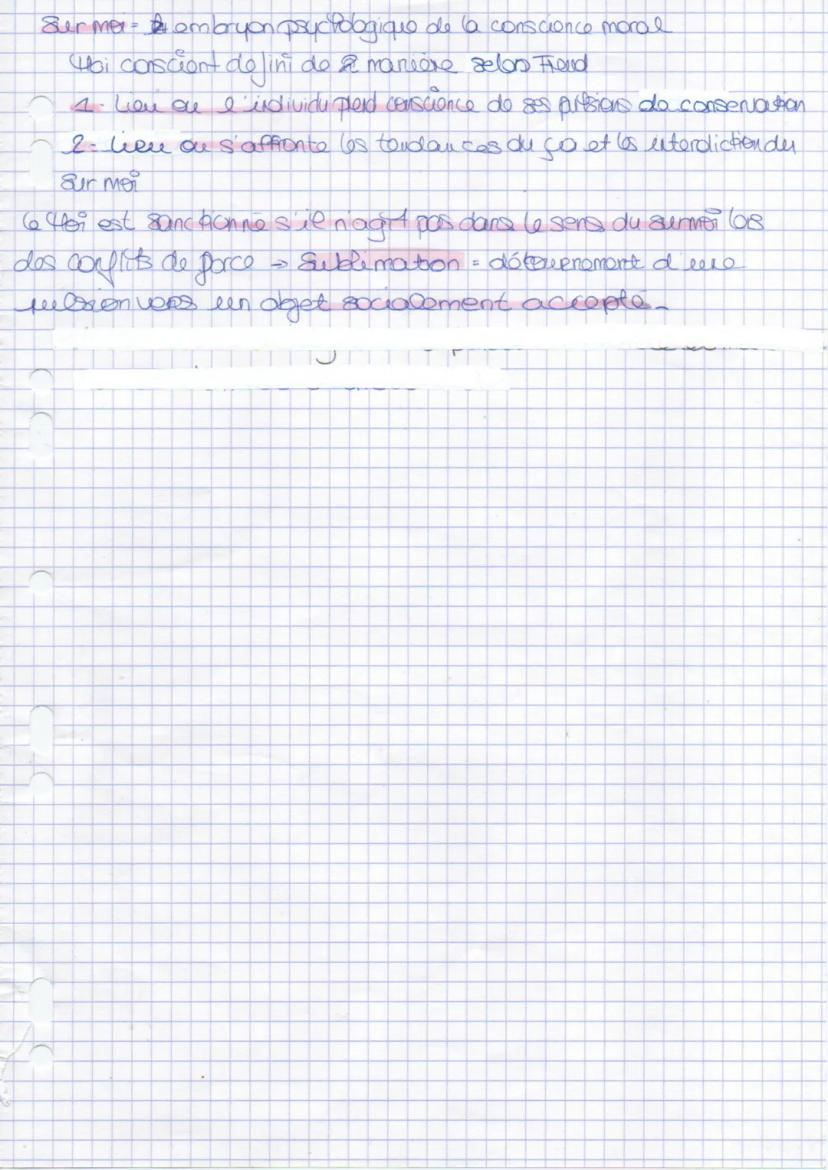 Sur moi = embryon psychologique de la conscience moral
Moi conscient défini de 2 manière selon Freud
1- Lieu ou l'individu prend conscience de ses pulsions de conservation
2- Lieu ou s'affronte les tendances du ça et les interdiction du
Sur moi
Le Moi est sanctionné s'il n'agit pas dans le sens du surmoi los
des conflits de force → Sublimation = détournement d'une
pulsion vers un objet socialement accepté.